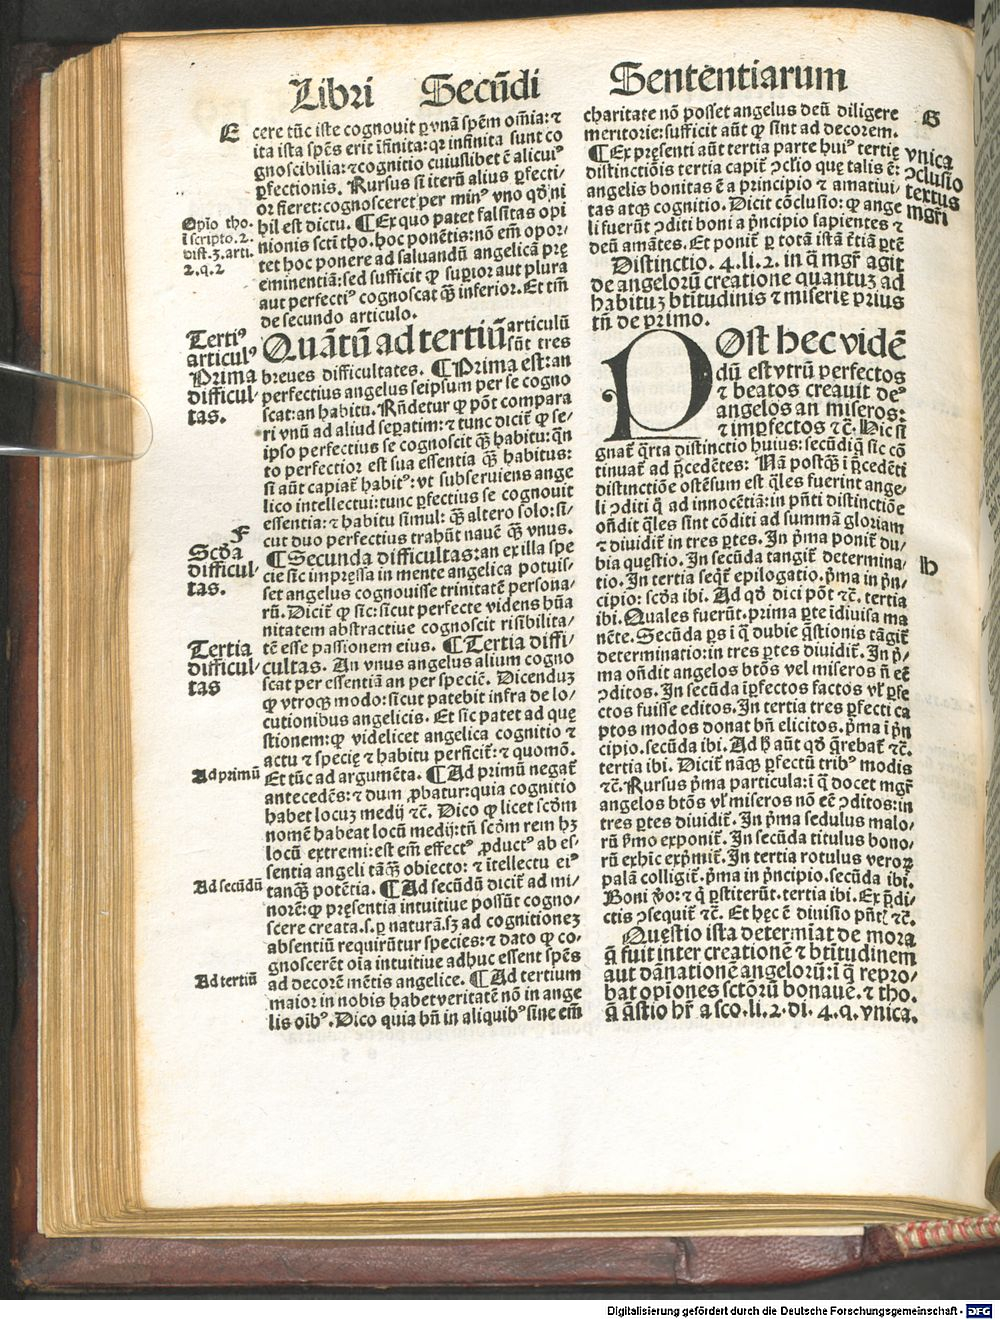 Libri Secūdi Sententiarum
E
cere tūc iste cognouit ꝑ vnā spēm om̄ia: ⁊
ita ista spēs erit īfinita: qꝛ infinita sunt co
gnoscibilia: ⁊ cognitio cuiuslibet ē alicuiꝰ
ꝑfectionis. Rursus si iterū alius ꝑfecti-
or fieret: cognosceret per minꝰ vno qđ ni
hil est dictu. ¶ Ex quo patet falsitas opi
nionis scti tho. hoc ponētis: nō em̄ opor-
tet hoc ponere ad saluandū angelicā pre
eminentiā: sed sufficit ꝙ supior aut plura
aut perfectiꝰ cognoscat q̄ꝫ inferior. Et tm̄
de secundo articulo.
Opio tho.
i scripto. 2.
dist. 3. arti.
2. q. 2
Tertiꝰ
articulꝰ
Prima
difficul-
tas.
Quātū ad tertiū articulū
sūt tres
breues difficultates. ¶ Prima est: an
perfectius angelus seipsum per se cogno
scat: an habitu. Rn̄detur ꝙ pōt compara
ri vnū ad aliud sepatim: ⁊ tunc dicit̄ ꝙ se-
ipso perfectius se cognoscit q̄ꝫ habitu: qn̄
to perfectior est sua essentia q̄ꝫ habitus:
si aūt capiat̄ habitꝰ: vt subseruiens ange
lico intellectui: tunc ꝑfectius se cognouit
essentia: ⁊ habitu simul: q̄ꝫ altero solo: si-
cut duo perfectius trahūt nauē q̄ꝫ vnus.
F
Scđa
difficul-
tas.
¶ Secunda difficultas: an ex illa spe
cie sic impressa in mente angelica potuis-
set angelus cognouisse trinitatē persona-
rū. Dicit̄ ꝙ sic: sicut perfecte videns hūa
nitatem abstractiue cognoscit risibilita-
tē esse passionem eius. ¶ Tertia diffi-
cultas. An vnus angelus alium cogno
scat per essentiā an per speciē. Dicenduꝫ
ꝙ vtroqꝫ modo: sicut patebit infra de lo-
cutionibus angelicis. Et sic patet ad quę
stionem: ꝙ videlicet angelica cognitio ⁊
actu ⁊ specię ⁊ habitu perficit̄: ⁊ quomō.
Tertia
difficul-
tas
Ad primū
Et tūc ad argumēta. ¶ Ad primū negat̄
antecedēs: ⁊ dum ꝓbatur: quia cognitio
habet locuꝫ medij ⁊c̄. Dico ꝙ licet scđm
nomē habeat locū medij: tn̄ scđm rem hꝫ
locū extremi: est em̄ effectꝰ ꝓductꝰ ab es-
sentia angeli tāq̄ꝫ obiecto: ⁊ ītellectu eiꝰ
tanq̄ꝫ potētia. ¶ Ad secūdū dicit̄ ad mi-
norē: ꝙ pręsentia intuitiue possūt cogno-
scere creata. s. ꝑ naturā. sꝫ ad cognitionez
absentiū requirūtur species: ⁊ dato ꝙ co-
gnoscerēt oīa intuitiue adhuc essent spēs
ad decorē mētis angelice. ¶ Ad tertium
maior in nobis habet veritatē nō in ange
lis oibꝰ. Dico quia bn̄ in aliquibꝰ sine em̄
Ad secūdū
Ad tertiū
charitate nō posset angelus deū diligere
meritorie: sufficit aūt ꝙ sint ad decorem.
¶ Ex pręsenti aūt tertia parte huiꝰ tertię
distinctiōis tertia capit̄ ꝯclio quę talis ē:
angelis bonitas ē a principio ⁊ amatiui-
tas atqꝫ cognitio. Dicit cōclusio: ꝙ ange
li fuerūt ꝯditi boni a pncipio sapientes ⁊
deū amātes. Et ponit̄ ꝑ totā istā t̄tiā ꝑtē
G
vnica
ꝯclusio
textus
mgr̄i
Distinctio. 4. li. 2. in q̄ mgr̄ agit
de angelorū creatione quantuꝫ ad
habituꝫ btitudinis ⁊ miserię prius
tn̄ de primo.
POst hec vidē
dū est vtrū perfectos
⁊ beatos creauit deꝰ
angelos an miseros:
⁊ imperfectos ⁊c̄. Hic si
gnat̄ q̄rta distinctio huius: secūdiq̄ sic cō
tinuat̄ ad p̄cedētes: Nā postq̄ꝫ i p̄cedēti
distinctiōe ostēsum est q̄les fuerint ange-
li ꝯditi q̄ ad innocētiā: in pn̄ti distinctiōe
on̄dit q̄les sint cōditi ad summā gloriam
⁊ diuidit̄ in tres ꝑtes. In pma ponit̄ du-
bia questio. In secūda tangit̄ determina-
tio. In tertia seqt̄ epilogatio. pma in pn-
cipio: scđa ibi. Ad qđ dici pōt ⁊c̄. tertia
ibi. Quales fuerūt. prima ꝑte īdiuisa ma
nēte. Secūda ꝑs i q̄ dubie q̄stionis tāgit̄
determinatio: in tres ꝑtes diuidit̄. In p-
ma on̄dit angelos btōs vel miseros n̄ eē
ꝯditos. In secūda īꝑfectos factos vl̄ ꝑfe
ctos fuisse editos. In tertia tres ꝑfecti ca
ptos modos donat bn̄ elicitos. pma i pn
cipio. secūda ibi. Ad h̄ aūt qđ q̄rebat̄ ⁊c̄.
tertia ibi. Dicit̄ nāqꝫ ꝑfectū tribꝰ modis
⁊c̄. Rursus pma particula: i q̄ docet mgr̄
angelos btōs vl̄ miseros nō eē ꝯditos: in
tres ꝑtes diuidit̄. In pma sedulus malo-
rū pmo exponit̄. In secūda titulus bono-
rū exhic expmit̄. In tertia rotulus veroꝝ
palā colligit̄. pma in pncipio. secūda ibi.
Boni v̄o: ⁊ q̄ ꝑstiterūt. tertia ibi. Ex p̄di-
ctis ꝯsequit̄ ⁊c̄. Et hęc ē diuisio pn̄tꝭ ⁊c̄.
h
Questio ista determīat de mora
q̄ fuit inter creationē ⁊ btitudinem
aut dānationē angelorū: i q̄ repro-
bat opiones sctōrū bonauē. ⁊ tho.
q̄ q̄stio hr̄ a sco. li. 2. di. 4. q. vnica.
Digitalisierung gefördert durch die Deutsche Forschungsgemeinschaft - DFG